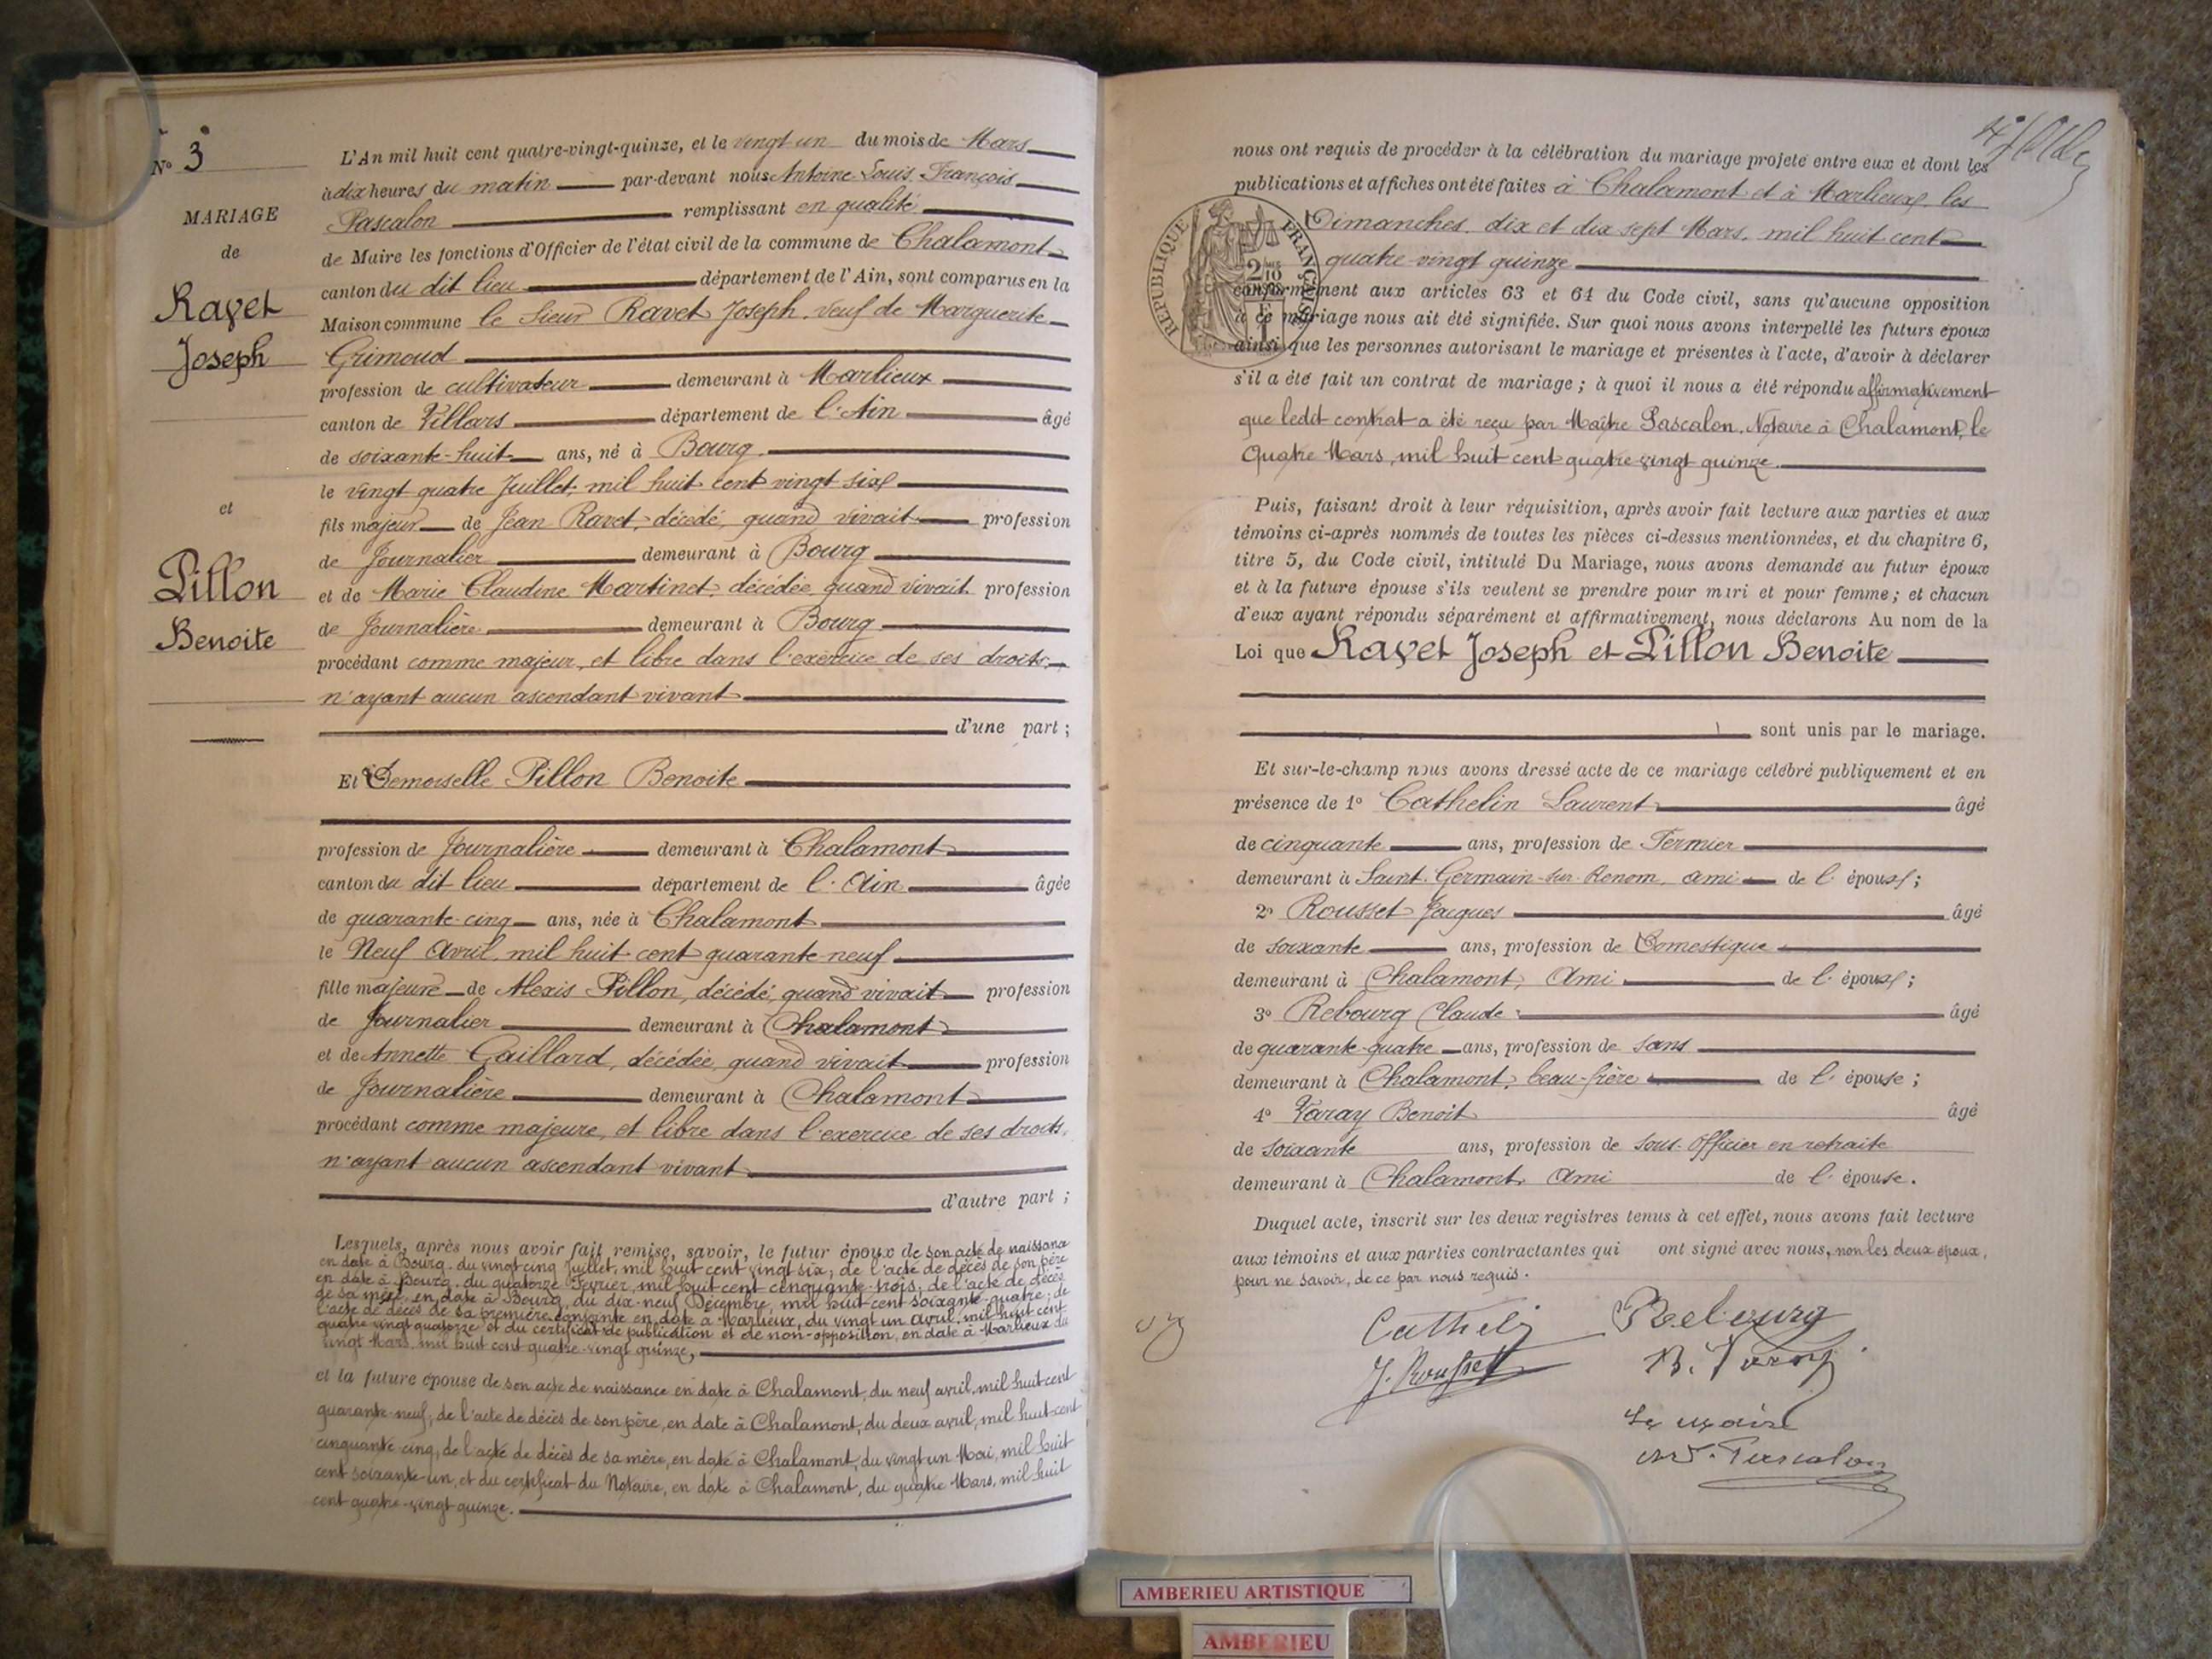 N° 3
MARIAGE
de
Ravet
Joseph
et
Pillon
Benoite
L'An mil huit cent quatre-vingt-quinze, et le vingt un du mois de Mars
à dix heures du matin par-devant nous Antoine Louis François
Pascalon remplissant en qualité
de Maire les fonctions d'Officier de l'état civil de la commune de Chalamont
canton du dit lieu département de l'Ain, sont comparus en la
Maison commune le Sieur Ravet Joseph, veuf de Marguerite
Grimoud
profession de cultivateur demeurant à Marlieux
canton de Villars département de l'Ain âgé
de soixante-huit ans, né à Bourg
le vingt quatre Juillet, mil huit cent vingt six
fils majeur de Jean Ravet, décédé, quand vivait profession
de Journalier demeurant à Bourg
et de Marie Claudine Martinet, décédée quand vivait profession
de Journalière demeurant à Bourg
procédant comme majeur, et libre dans l'exercice de ses droits,
n'ayant aucun ascendant vivant
d'une part ;
Et Demoiselle Pillon Benoite
profession de Journalière demeurant à Chalamont
canton du dit lieu département de l'Ain âgée
de quarante-cinq ans, née à Chalamont
le Neuf Avril, mil huit cent quarante-neuf
fille majeure de Alexis Pillon, décédé, quand vivait profession
de Journalier demeurant à Chalamont
et de Annette Gaillard, décédée, quand vivait profession
de Journalière demeurant à Chalamont
procédant comme majeure, et libre dans l'exercice de ses droits,
n'ayant aucun ascendant vivant
d'autre part ;
Lesquels, après nous avoir fait remise, savoir, le futur époux de son acte de naissance
en date à Bourg, du vingt cinq Juillet, mil huit cent vingt six, de l'acte de décès de son père
en date à Bourg, du quatorze Février, mil huit cent cinquante-trois; de l'acte de décès
de sa mère, en date à Bourg, du dix-neuf Décembre, mil huit cent soixante-quatre; de
l'acte de décès de sa première conjointe en date à Marlieux, du vingt un Avril, mil huit cent
quatre vingt quatorze et du certificat de publication et de non-opposition, en date à Marlieux du
vingt Mars, mil huit cent quatre-vingt quinze,
et la future épouse de son acte de naissance en date à Chalamont, du neuf avril, mil huit cent
quarante-neuf; de l'acte de décès de son père, en date à Chalamont, du deux avril, mil huit-cent
cinquante cinq, de l'acte de décès de sa mère, en date à Chalamont, du vingt un Mai, mil huit
cent soixante-un, et du certificat du Notaire, en date à Chalamont, du quatre Mars, mil huit
cent quatre-vingt quinze.
nous ont requis de procéder à la célébration du mariage projeté entre eux et dont les
publications et affiches ont été faites à Chalamont et à Marlieux, les
Dimanches, dix et dix sept Mars, mil huit cent
quatre-vingt quinze
RÉPUBLIQUE FRANÇAISE
conformément aux articles 63 et 64 du Code civil, sans qu'aucune opposition
à ce mariage nous ait été signifiée. Sur quoi nous avons interpellé les futurs époux
ainsi que les personnes autorisant le mariage et présentes à l'acte, d'avoir à déclarer
s'il a été fait un contrat de mariage ; à quoi il nous a été répondu affirmativement
que ledit contrat a été reçu par Maître Pascalon, Notaire à Chalamont, le
Quatre Mars, mil huit cent quatre-vingt quinze.
Puis, faisant droit à leur réquisition, après avoir fait lecture aux parties et aux
témoins ci-après nommés de toutes les pièces ci-dessus mentionnées, et du chapitre 6,
titre 5, du Code civil, intitulé Du Mariage, nous avons demandé au futur époux
et à la future épouse s'ils veulent se prendre pour mari et pour femme ; et chacun
d'eux ayant répondu séparément et affirmativement, nous déclarons Au nom de la
Loi que Ravet Joseph et Pillon Benoite
sont unis par le mariage.
Et sur-le-champ nous avons dressé acte de ce mariage célébré publiquement et en
présence de 1° Cathelin Laurent âgé
de cinquante ans, profession de Fermier
demeurant à Saint-Germain-sur-Renom, ami de l'époux ;
2° Rousset Jacques âgé
de soixante ans, profession de Domestique
demeurant à Chalamont, Ami de l'époux ;
3° Rebourg Claude âgé
de quarante-quatre ans, profession de sans
demeurant à Chalamont, beau-frère de l'épouse ;
4° Varay Benoit âgé
de soixante ans, profession de sous-Officier en retraite
demeurant à Chalamont, Ami de l'épouse.
Duquel acte, inscrit sur les deux registres tenus à cet effet, nous avons fait lecture
aux témoins et aux parties contractantes qui ont signé avec nous, non les deux époux,
pour ne savoir, de ce par nous requis.
Cathelin Rebourg
J. Rousset B. Varay
Le maire
Pascalon
AMBERIEU ARTISTIQUE
AMBERIEU